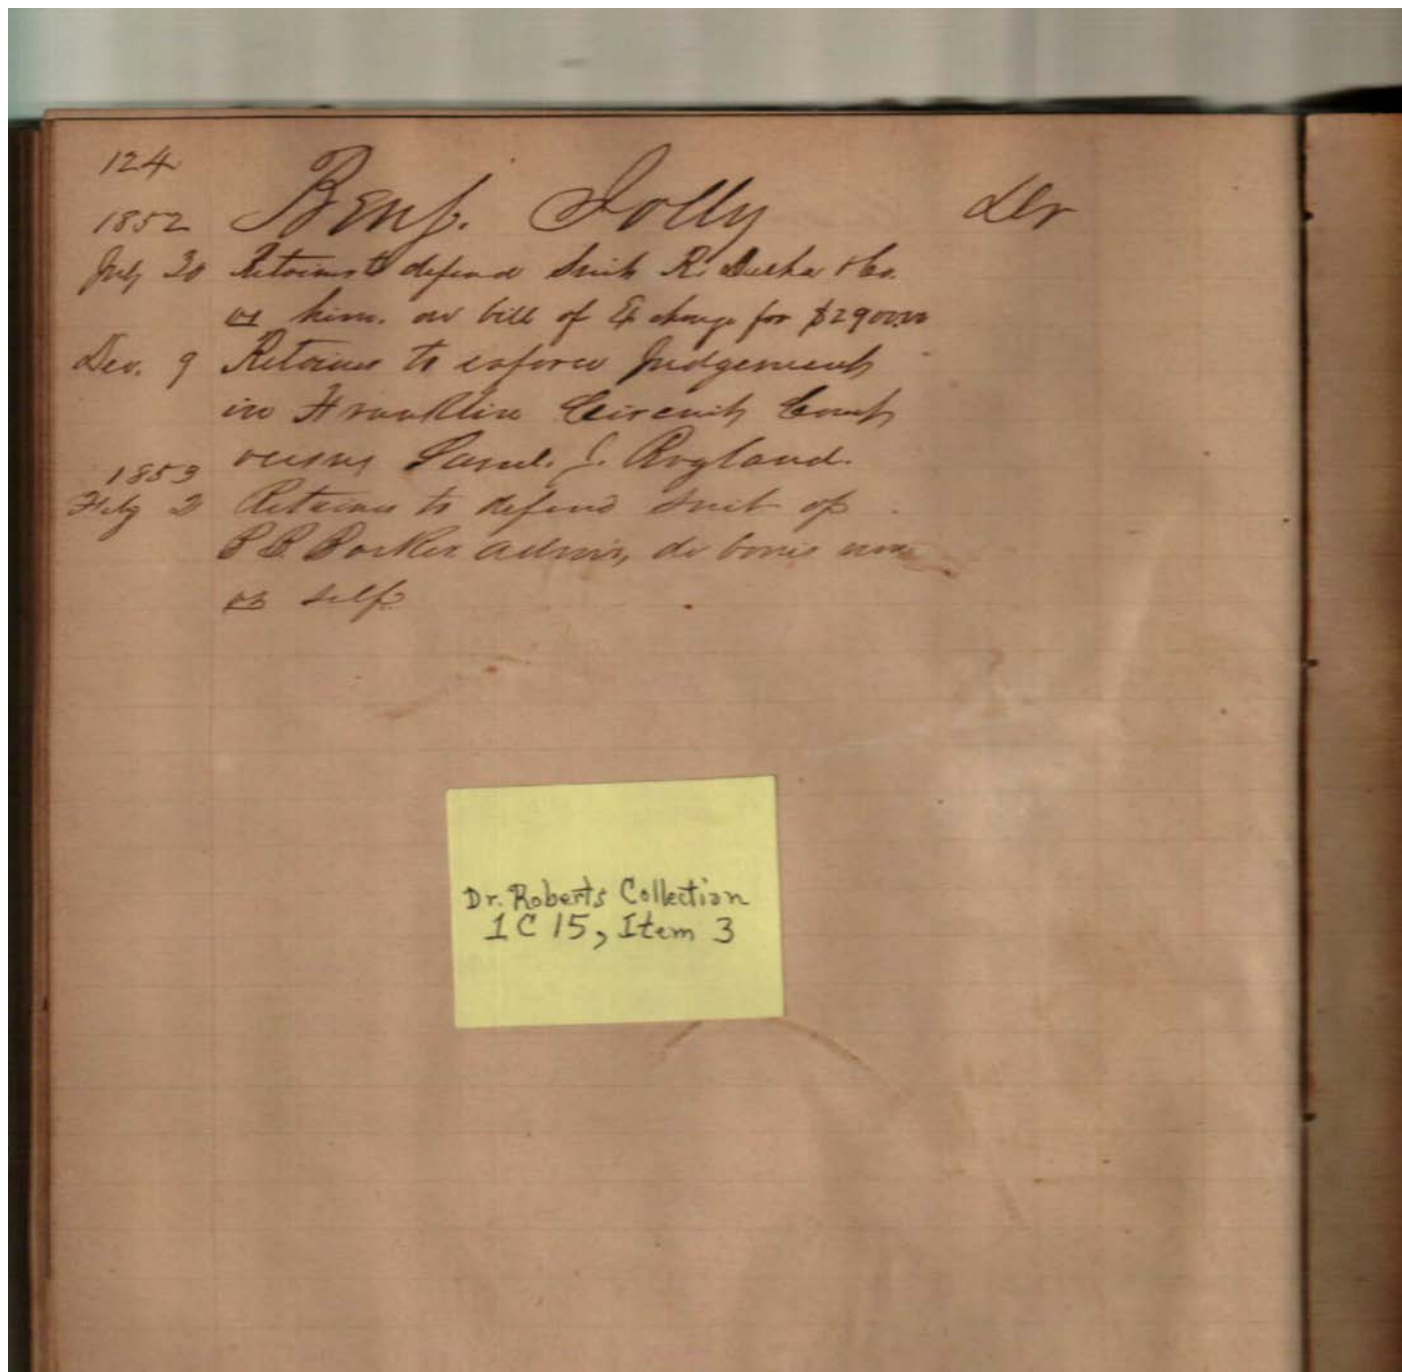 124
1852 Benj. Jolly Dr
July 20 Retainer to defend Suit R. Desha & Co.
vs him. on bill of Exchange for $2900.00
Dec. 9 Retainer to enforce Judgement
in Franklin Circuit Court
versus Saml. J. Ragland.
1853
Feby 2 Retainer to defend Suit of
P B Parker Admr, de bonis non
vs self
Dr. Roberts Collection
1C 15, Item 3